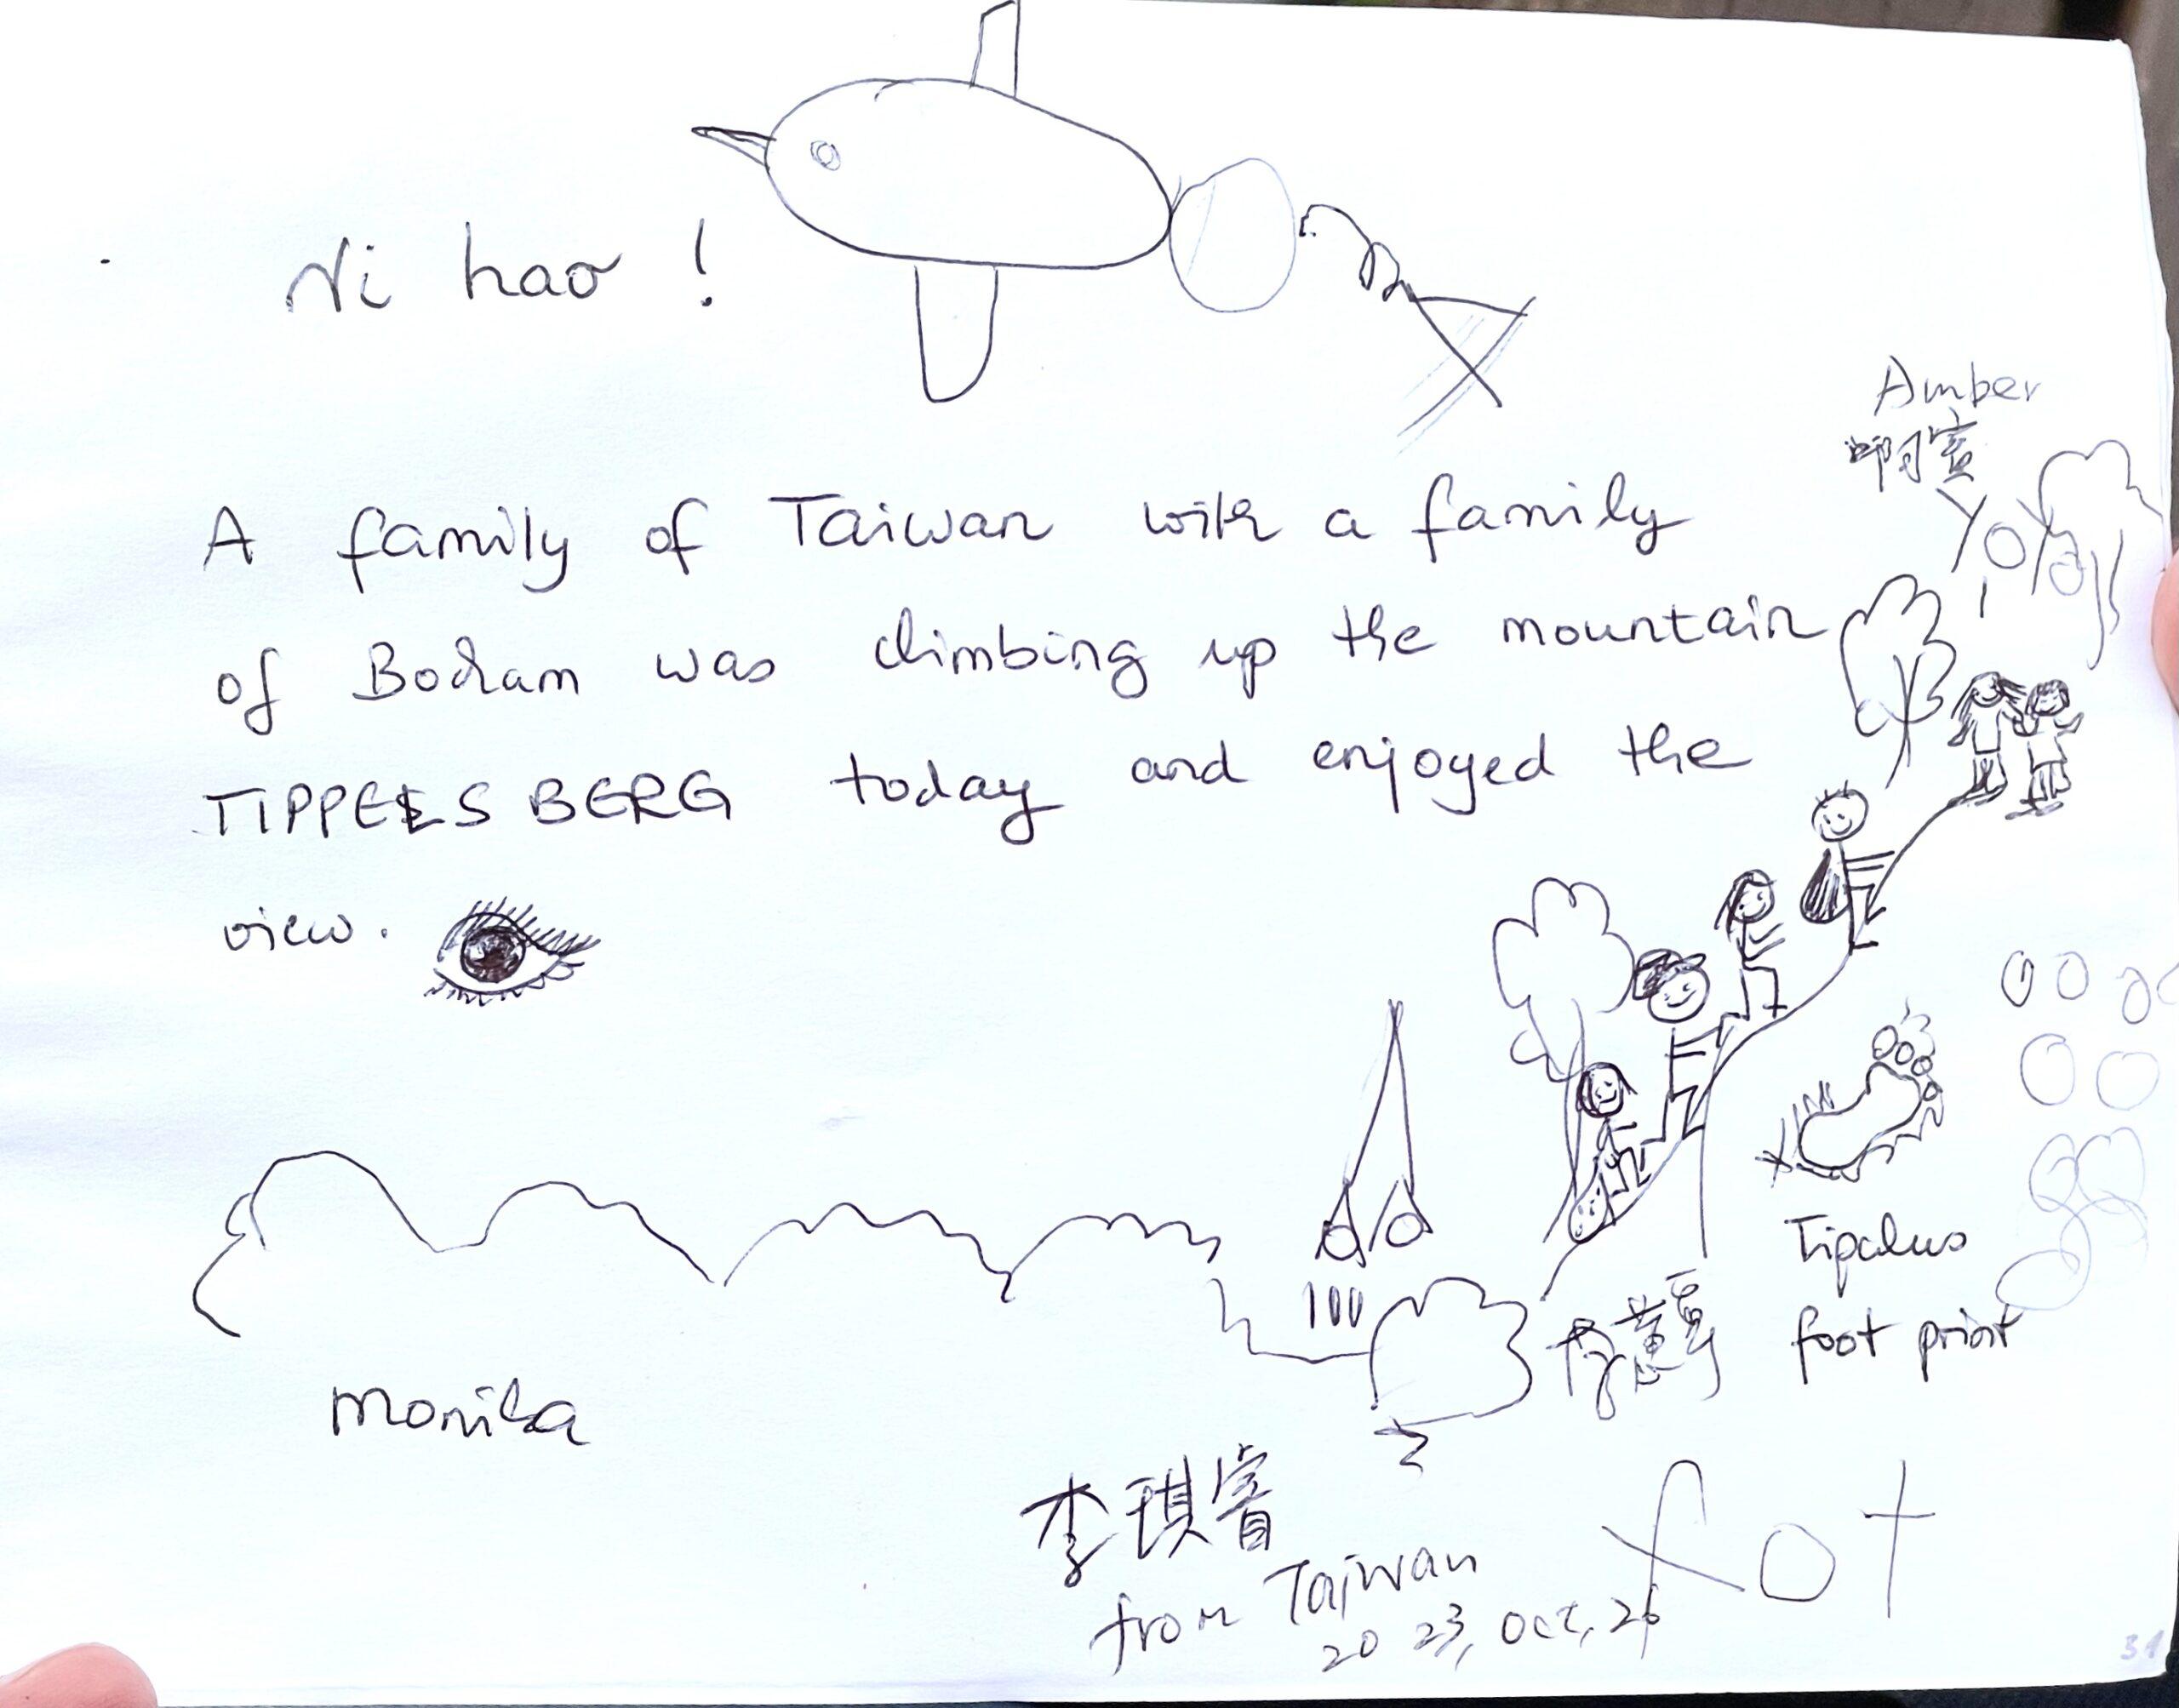 Ni hao !
Amber
YoYo
A family of Taiwan with a family
of Bochum was climbing up the mountain
TIPPELS BERG today and enjoyed the
view.
100
Tipalus
foot print
Monika
李琪睿
from Taiwan
2023, Oct, 26
31